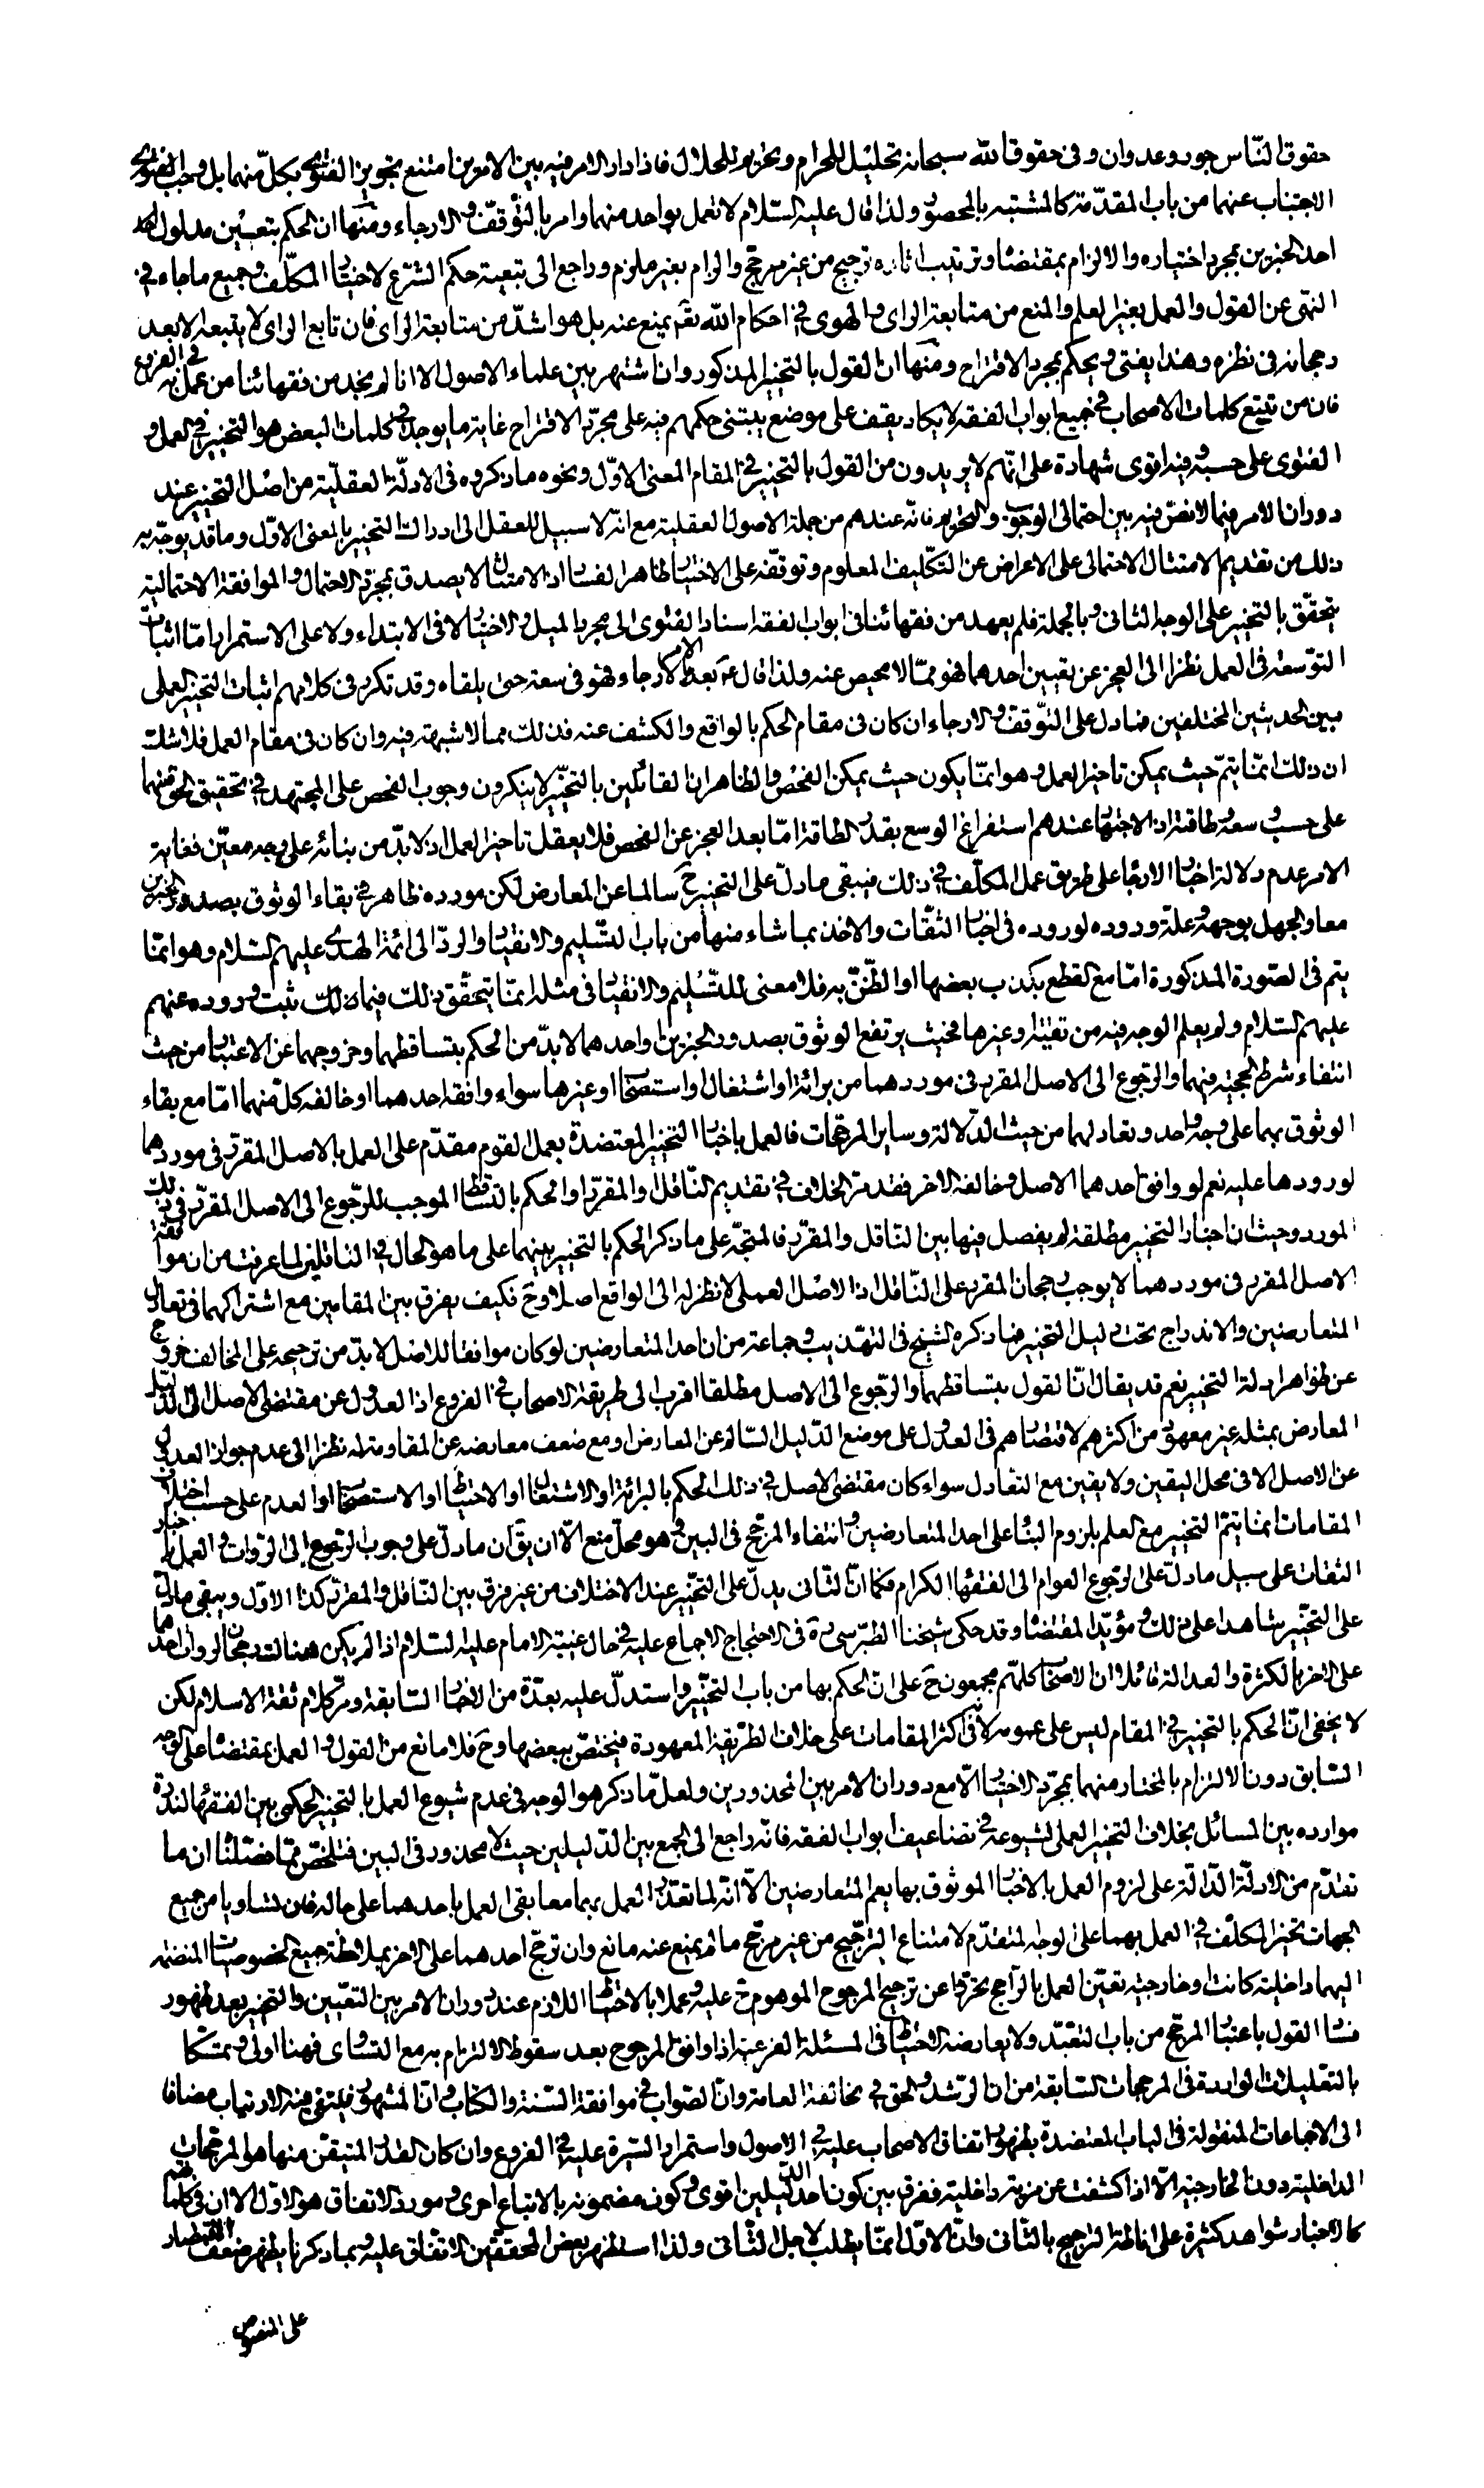 حقوق الناس جور وعدوان وفى حقوق الله سبحانه تحليل للحرام وتحريم للحلال فاذا دار الامر فيه بين الامرين امتنع تجويز الفتوى بكل منهما بل وجب الفتوى
الاجتناب عنهما من باب المقدمة كالمشتبه بالمحصور ولذا قال عليه السلام لا تعمل بواحد منهما وامر بالتوقف والارجاء ومنها ان الحكم بتعيين مدلول
احد الخبرين بمجرد اختياره والالزام بمقتضاه وترتيب اثاره ترجيح من غير مرجح والزام بغير ملزم وراجع الى تبعية حكم الشرع لاختيار المكلف وجميع ما جاء فى
النهى عن القول والعمل بغير العلم والمنع من متابعة الراى والهوى فى احكام الله تعم يمنع عنه بل هو اشد من متابعة الراى فان تابع الراى لا يتبعه الا بعد
رجحانه فى نظره وهذا يفتى ويحكم بمجرد الاقتراح ومنها ان القول بالتخيير المذكور وان اشتهر بين علماء الاصول الا انا لم نجد من فقهائنا من عمل به فى الفروع
فان من تتبع كلمات الاصحاب فى جميع ابواب الفقه لا يكاد يقف على موضع يبتنى حكمهم فيه على مجرد الاقتراح غاية ما يوجد فى كلمات البعض هو التخيير فى العمل و
الفتوى على حسبه وفيه اقوى شهادة على انهم لا يريدون من القول بالتخيير فى المقام المعنى الاول ونحوه ما ذكروه فى الادلة العقلية من اصل التخيير عند
دوران الامر فيما لا نص فيه بين احتمالى الوجوب والتحريم فانه عندهم من جملة الاصول العقلية مع انه لا سبيل للعقل الى ادراك التخيير بالمعنى الاول وما قد يوجه به
ذلك من تقديم الامتثال الاحتمالى على الاعراض عن التكليف المعلوم وتوقفه على الاختيار ظاهر الفساد اذ الامتثال لا يصدق بمجرد الاحتمال والموافقة الاحتمالية
يتحقق بالتخيير على الوجه الثانى وبالجملة فلم يعهد من فقهائنا فى ابواب الفقه اسناد الفتوى الى مجرد الميل والاختيار لا فى الابتداء ولا على الاستمرار اما اثبات
التوسعة فى العمل نظرا الى العجز عن تعيين احدهما فهو مما لا محيص عنه ولذا قال ع بعد الامر بالارجاء فهو فى سعة حتى يلقاه وقد تكرر فى كلامهم اثبات التخيير العملى
بين الحديثين المختلفين فما دل على التوقف والارجاء ان كان فى مقام الحكم بالواقع والكشف عنه فذلك مما لا شبهة فيه وان كان فى مقام العمل فلا شك
ان ذلك انما يتم حيث يمكن تاخير العمل وهو انما يكون حيث يمكن الفحص والظاهر ان القائلين بالتخيير لا ينكرون وجوب الفحص على المجتهد فى تحقيق الحق منهما
على حسب وسعه وطاقته اذ الاجتهاد عندهم استفراغ الوسع بقدر الطاقة اما بعد العجز عن الفحص فلا يعقل تاخير العمل اذ لا بد من بنائه على وجه معين فغاية
الامر عدم دلالة اخبار الارجاء على طريق عمل المكلف فى ذلك فيبقى ما دل على التخيير ح سالما عن المعارض لكن مورده ظاهر فى بقاء الوثوق بصدور الخبرين
معا والجهل بوجهه وعلة وروده لوروده فى اخبار الثقات والاخذ بما شاء منها من باب التسليم والانقياد والرد الى ائمة الهدى عليهم السلام وهو انما
يتم فى الصورة المذكورة اما مع القطع بكذب بعضها او الظن به فلا معنى للتسليم والانقياد فى مثله انما يتحقق ذلك فيما ثبت وروده عنهم
عليهم السلام ولم يعلم الوجه فيه من تقية وغيرها فحيث يرتفع الوثوق بصدور الخبرين او احدهما لا بد من الحكم بتساقطهما وخروجهما عن الاعتبار من حيث
انتفاء شرط الحجية فيهما والرجوع الى الاصل المقرر فى موردهما من برائة او اشتغال او استصحاب او غيرها سواء وافقه احدهما او خالفه كل منهما اما مع بقاء
الوثوق بهما على وجه واحد وتعادلهما من حيث الدلالة وساير المرجحات فالعمل باخبار التخيير المعتضدة بعمل القوم مقدم على العمل بالاصل المقرر فى موردهما
لورودها عليه نعم لو وافق احدهما الاصل وخالفه الاخر فقد مر الخلاف فى تقديم الناقل والمقرر او الحكم بالتساقط الموجب للرجوع الى الاصل المقرر فى ذلك
المورد وحيث ان اخبار التخيير مطلقة لم يفصل فيها بين الناقل والمقرر فالمتجه على ما ذكر الحكم بالتخيير بينهما على ما هو الحال فى الناقلين لما عرفت من ان موافقة
الاصل المقرر فى موردهما لا يوجب رجحان المقرر على الناقل اذ الاصل العملى لا نظر له الى الواقع اصلا وح فكيف يفرق بين المقامين مع اشتراكهما فى تعادل
المتعارضين والاندراج تحت دليل التخيير فما ذكره الشيخ فى التهذيب وجماعة من ان احد المتعارضين لو كان موافقا للاصل لا بد من ترجيحه على المخالف خروج
عن ظواهر ادلة التخيير نعم قد يقال ان القول بتساقطهما والرجوع الى الاصل مطلقا اقرب الى طريقة الاصحاب فى الفروع اذ العدول عن مقتضى الاصل الى الدليل
المعارض بمثله غير معهود من اكثرهم لاقتصارهم فى العدول على موضع الدليل السالم عن المعارض او مع ضعف معارضه عن المقاومة له نظرا الى عدم جواز العدول
عن الاصل الا فى محل اليقين ولا يقين مع التعادل سواء كان مقتضى الاصل فى ذلك الحكم بالبرائة او الاشتغال او الاحتياط او الاستصحاب او العدم على حسب اختلاف
المقامات انما يتم التخيير مع العلم بلزوم البناء على احد المتعارضين وانتفاء المرجح فى البين وهو محل منع الا ان يق ان ما دل على وجوب الرجوع الى الروات والعمل باخبار
الثقات على سبيل ما دل على لرجوع العوام الى الفقهاء الكرام فكما ان الثانى يدل على التخيير عند الاختلاف من غير فرق بين الناقل والمقرر كذا الاول ويبقى ما دل
على التخيير شاهدا على ذلك ومؤيدا لمقتضاه وقد حكى شيخنا الطبرسى ره فى الاحتجاج الاجماع عليه فى حال غيبة الامام عليه السلام اذا لم يكن هناك رجحان لرواة احدهما
على الاخر بالكثرة والعدالة قائلا ان الاصحاب كلهم مجمعون ح على ان الحكم بها من باب التخيير واستدل عليه بعدة من الاخبار السابقة ومر كلام ثقة الاسلام لكن
لا يخفى ان الحكم بالتخيير فى المقام ليس على عمومه لانه فى اكثر المقامات على خلاف الطريقة المعهودة فيختص ببعضها وح فلا مانع من القول والعمل بمقتضاه على الوجه
السابق دون الالتزام بالمختار منهما بمجرد الاختيار الا مع دوران الامر بين المحذورين ولعل ما ذكر هو الوجه فى عدم شيوع العمل بالتخيير الحكمى بين الفقهاء لندرة
موارده بين المسائل بخلاف التخيير العملى لشيوعه فى تضاعيف ابواب الفقه فانه راجع الى الجمع بين الدليلين حيث لا محذور فى البين فتلخص مما فصلنا ان ما
تقدم من الادلة الدالة على لزوم العمل بالاخبار الموثوق بها يعم المتعارضين الا انه لما تعذر العمل بهما معا بقى العمل باحدهما على حاله فان تساويا من جميع
الجهات تخير المكلف فى العمل بهما على الوجه المتقدم لامتناع الترجيح من غير مرجح ما لم يمنع عنه مانع وان ترجح احدهما على الاخر بملاحظة جميع الخصوصيات المنضمة
اليهما داخلية كانت او خارجية تعين العمل بالراجح تحرزا عن ترجيح المرجوح الموهوم ح عليه وعملا بالاحتياط اللازم عند دوران الامر بين التعيين والتخيير بعد ظهور
فساد القول باعتبار المرجح من باب التعبد ولا يعارضه الاحتياط فى المسئلة الفرعية اذا وافق المرجوح بعد سقوط الالتزام به مع التساوى فهنا اولى وتمسكا
بالتعليلات الواردة فى المرجحات السابقة من ان الرشد والحق فى مخالفة العامة وان الصواب فى موافقة السنة والكتاب وان المشهور ينتفى منه الارتياب مضافا
الى الاجماعات المنقولة فى الباب المعتضدة بظهور اتفاق الاصحاب عليه فى الاصول واستمرار السيرة عليه فى الفروع وان كان القدر المتيقن منها هو المرجحات
الداخلية دون الخارجية الا اذا كشفت عن مزية داخلية ففرق بين كون احد الدليلين اقوى وكون مضمونه بالاتباع احرى ومورد الاتفاق هو الاول الا ان فى كلماتهم
كالاخبار شواهد كثيرة على اناطة الترجيح بالثانى وان الاول انما يطلب لاجل الثانى ولذا استظهر بعض المحققين الاتفاق عليه وبما ذكرنا يظهر ضعف الاقتصار
على المنصوص